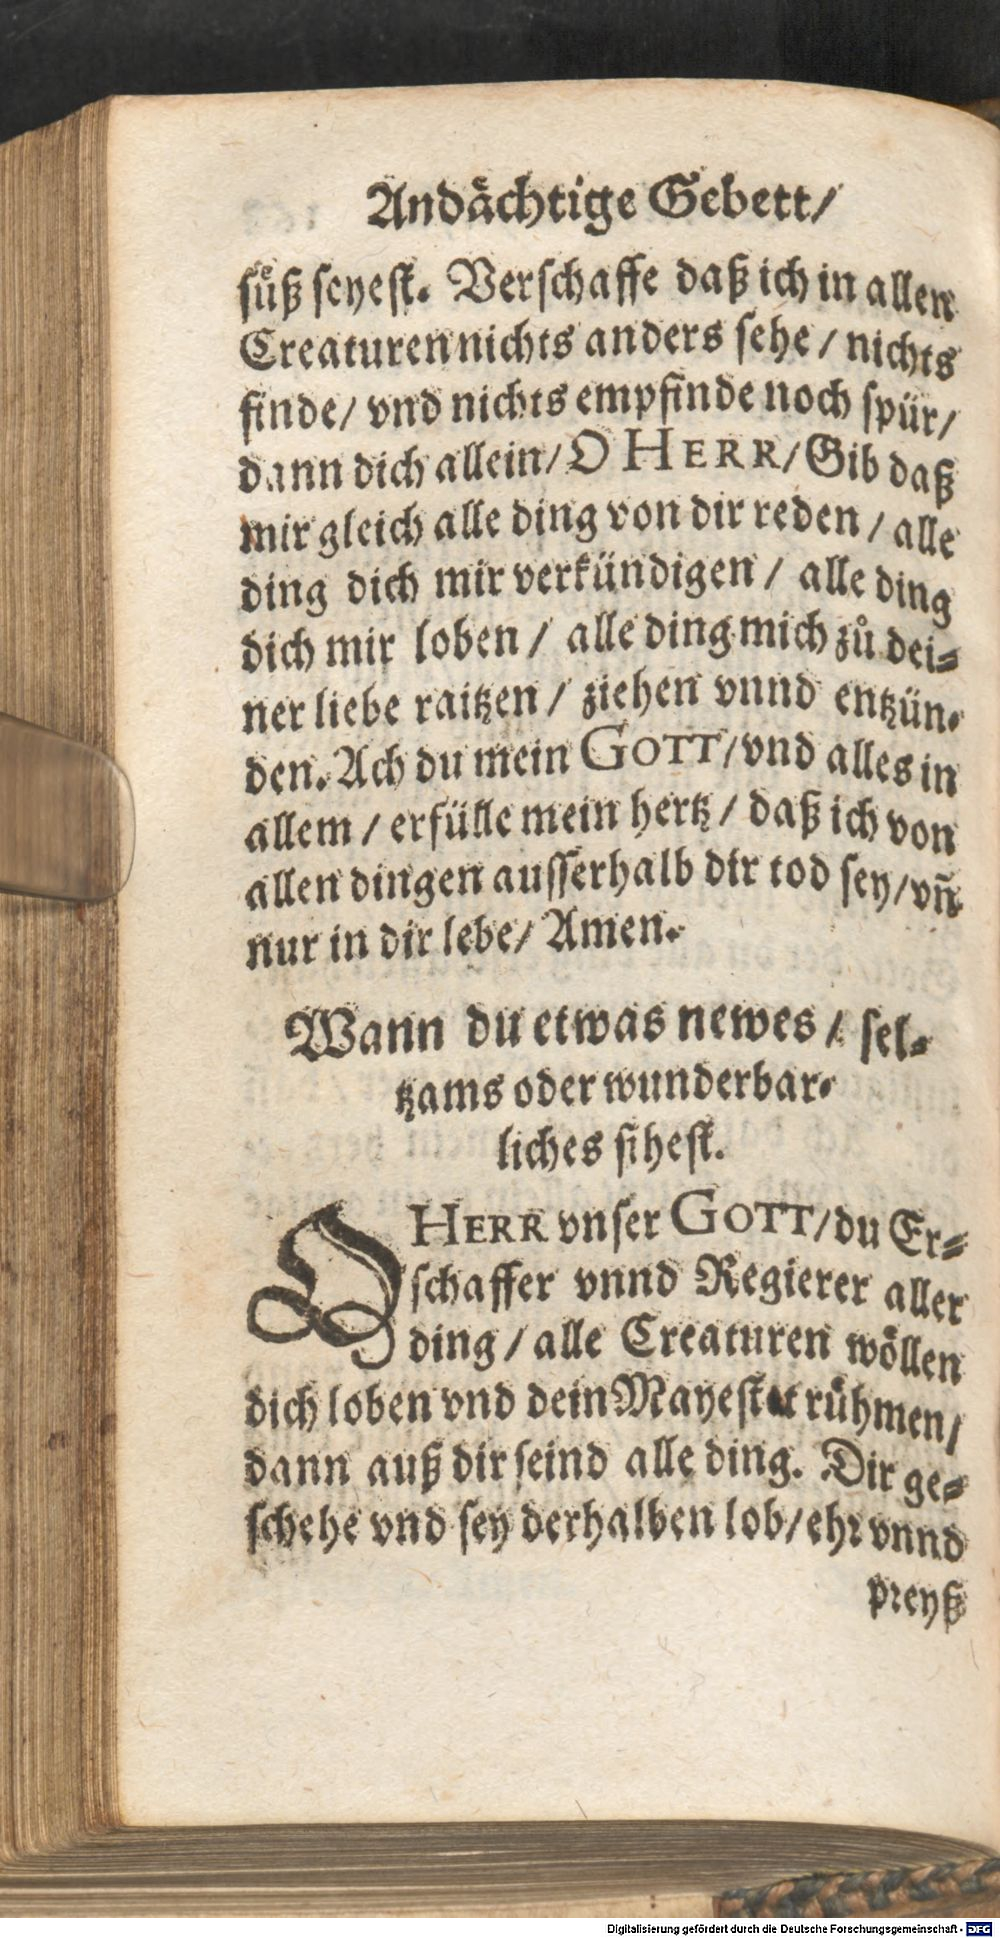 Andaͤchtige Gebett/
ſuͤß ſeyeſt. Verſchaffe daß ich in allen
Creaturen nichts anders ſehe / nichts
finde/ vnd nichts empfinde noch ſpür/
dann dich allein/ O HERR/ Gib daß
mir gleich alle ding von dir reden / alle
ding dich mir verkündigen / alle ding
dich mir loben / alle ding mich zů dei⸗
ner liebe raitzen / ziehen vnnd entzün⸗
den. Ach du mein GOTT/ vnd alles in
allem / erfülle mein hertz / daß ich von
allen dingen auſſerhalb dir tod ſey/ vñ
nur in dir lebe/ Amen.
Wann du etwas newes / ſel⸗
tzams oder wunderbar⸗
liches ſiheſt.
O HERR vnſer GOTT/ du Er⸗
ſchaffer vnnd Regierer aller
ding / alle Creaturen woͤllen
dich loben vnd dein Mayeſtat rühmen/
dann auß dir ſeind alle ding. Dir ge⸗
ſchehe vnd ſey derhalben lob/ ehꝛ vnnd
pꝛeyß
Digitalisierung gefördert durch die Deutsche Forschungsgemeinschaft - DFG